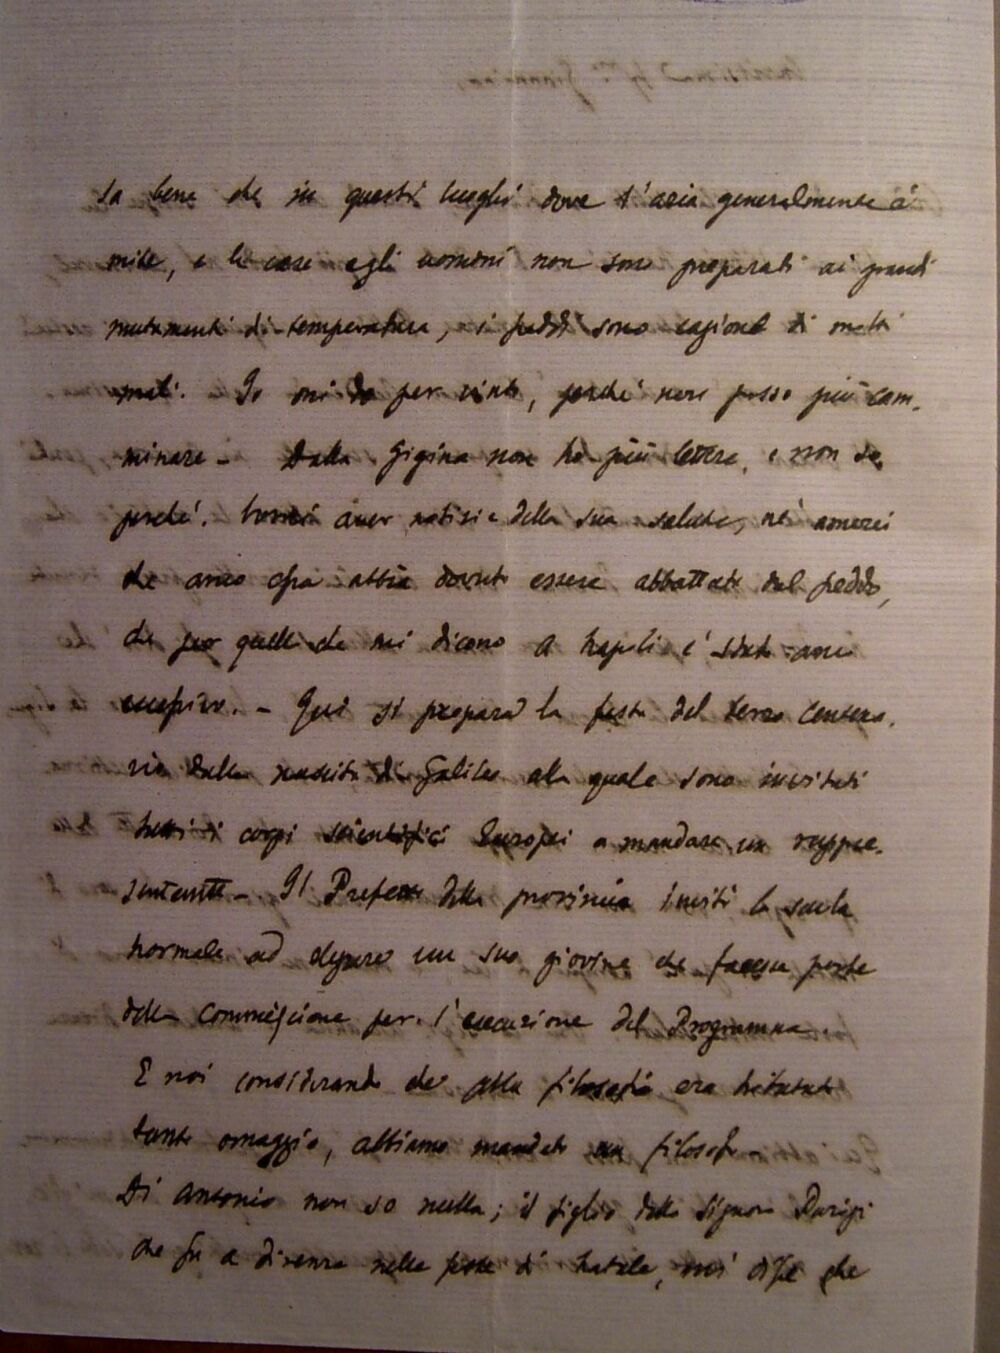 sa bene che in questi luoghi dove l'aria generalmente è
mite, e le case e gli uomini non sono preparati ai grandi
mutamenti di temperatura, i freddi sono cagione di molti
mali. Io mi do per vinto, perché non posso più cam-
minare – Dalla Gigina non ho più lettere, e non so
perché. Vorrei aver notizie della sua salute, né amerei
che anco essa abbia dovuto essere abbattuta dal freddo,
che per quello che mi dicono a Napoli è stato anco
eccessivo. – Qui si prepara la festa del terzo centena-
rio dalla nascita di Galileo alla quale sono invitati
tutti i corpi scientifici Europei a mandare un rappre-
sentante – Il Prefetto della provincia invitò la scuola
normale ad eleggere un suo giovine che facesse parte
della Commissione per l'esecuzione del Programma.
E noi considerando che alla filosofia era tributato
tanto omaggio, abbiamo mandato un filosofo –
Di Antonio non so nulla; il figlio della Signora Parigi
che fu a Firenze nelle feste di Natale, mi disse che